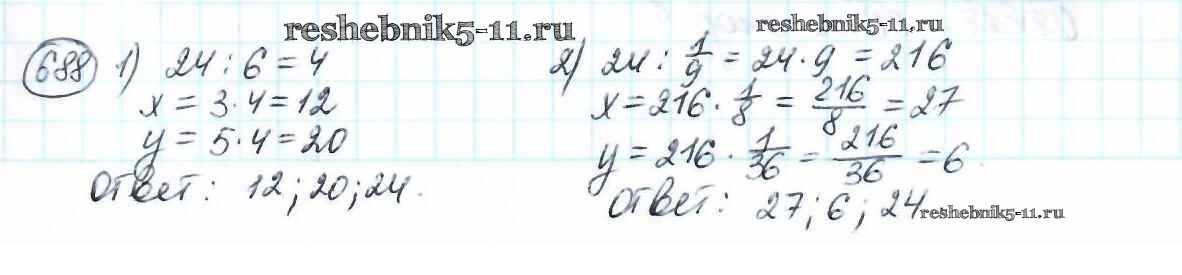 reshebnik5-11.ru
reshebnik5-11.ru
688 1) 24 : 6 = 4
x = 3 · 4 = 12
y = 5 · 4 = 20
Ответ: 12; 20; 24.
2) 24 : 1/9 = 24 · 9 = 216
x = 216 · 1/8 = 216/8 = 27
y = 216 · 1/36 = 216/36 = 6.
Ответ: 27; 6; 24
reshebnik5-11.ru